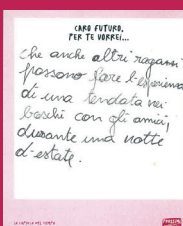 CARO FUTURO,
PER TE VORREI...
che anche altri ragazzi
possano fare l'esperienza
di una tendata nei
boschi con gli amici,
durante una notte
d'estate.
LA CAPSULA DEL TEMPO